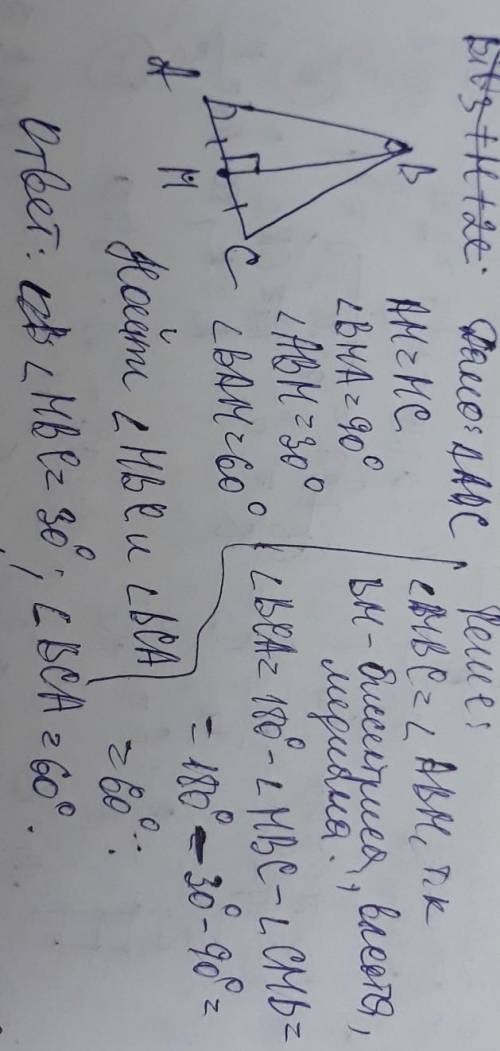 Дано: △ABC
B
A
M
C
AM=MC
∠BMA=90°
∠ABM=30°
∠BAM=60°
Найти ∠MBC и ∠BCA
Решение:
∠MBC=∠ABM, т.к
BM - биссектриса, высота,
медиана.
∠BCA=180°-∠MBC-∠CMB=
=180°-30°-90°=
=60°.
Ответ: ∠MBC=30°; ∠BCA=60°.